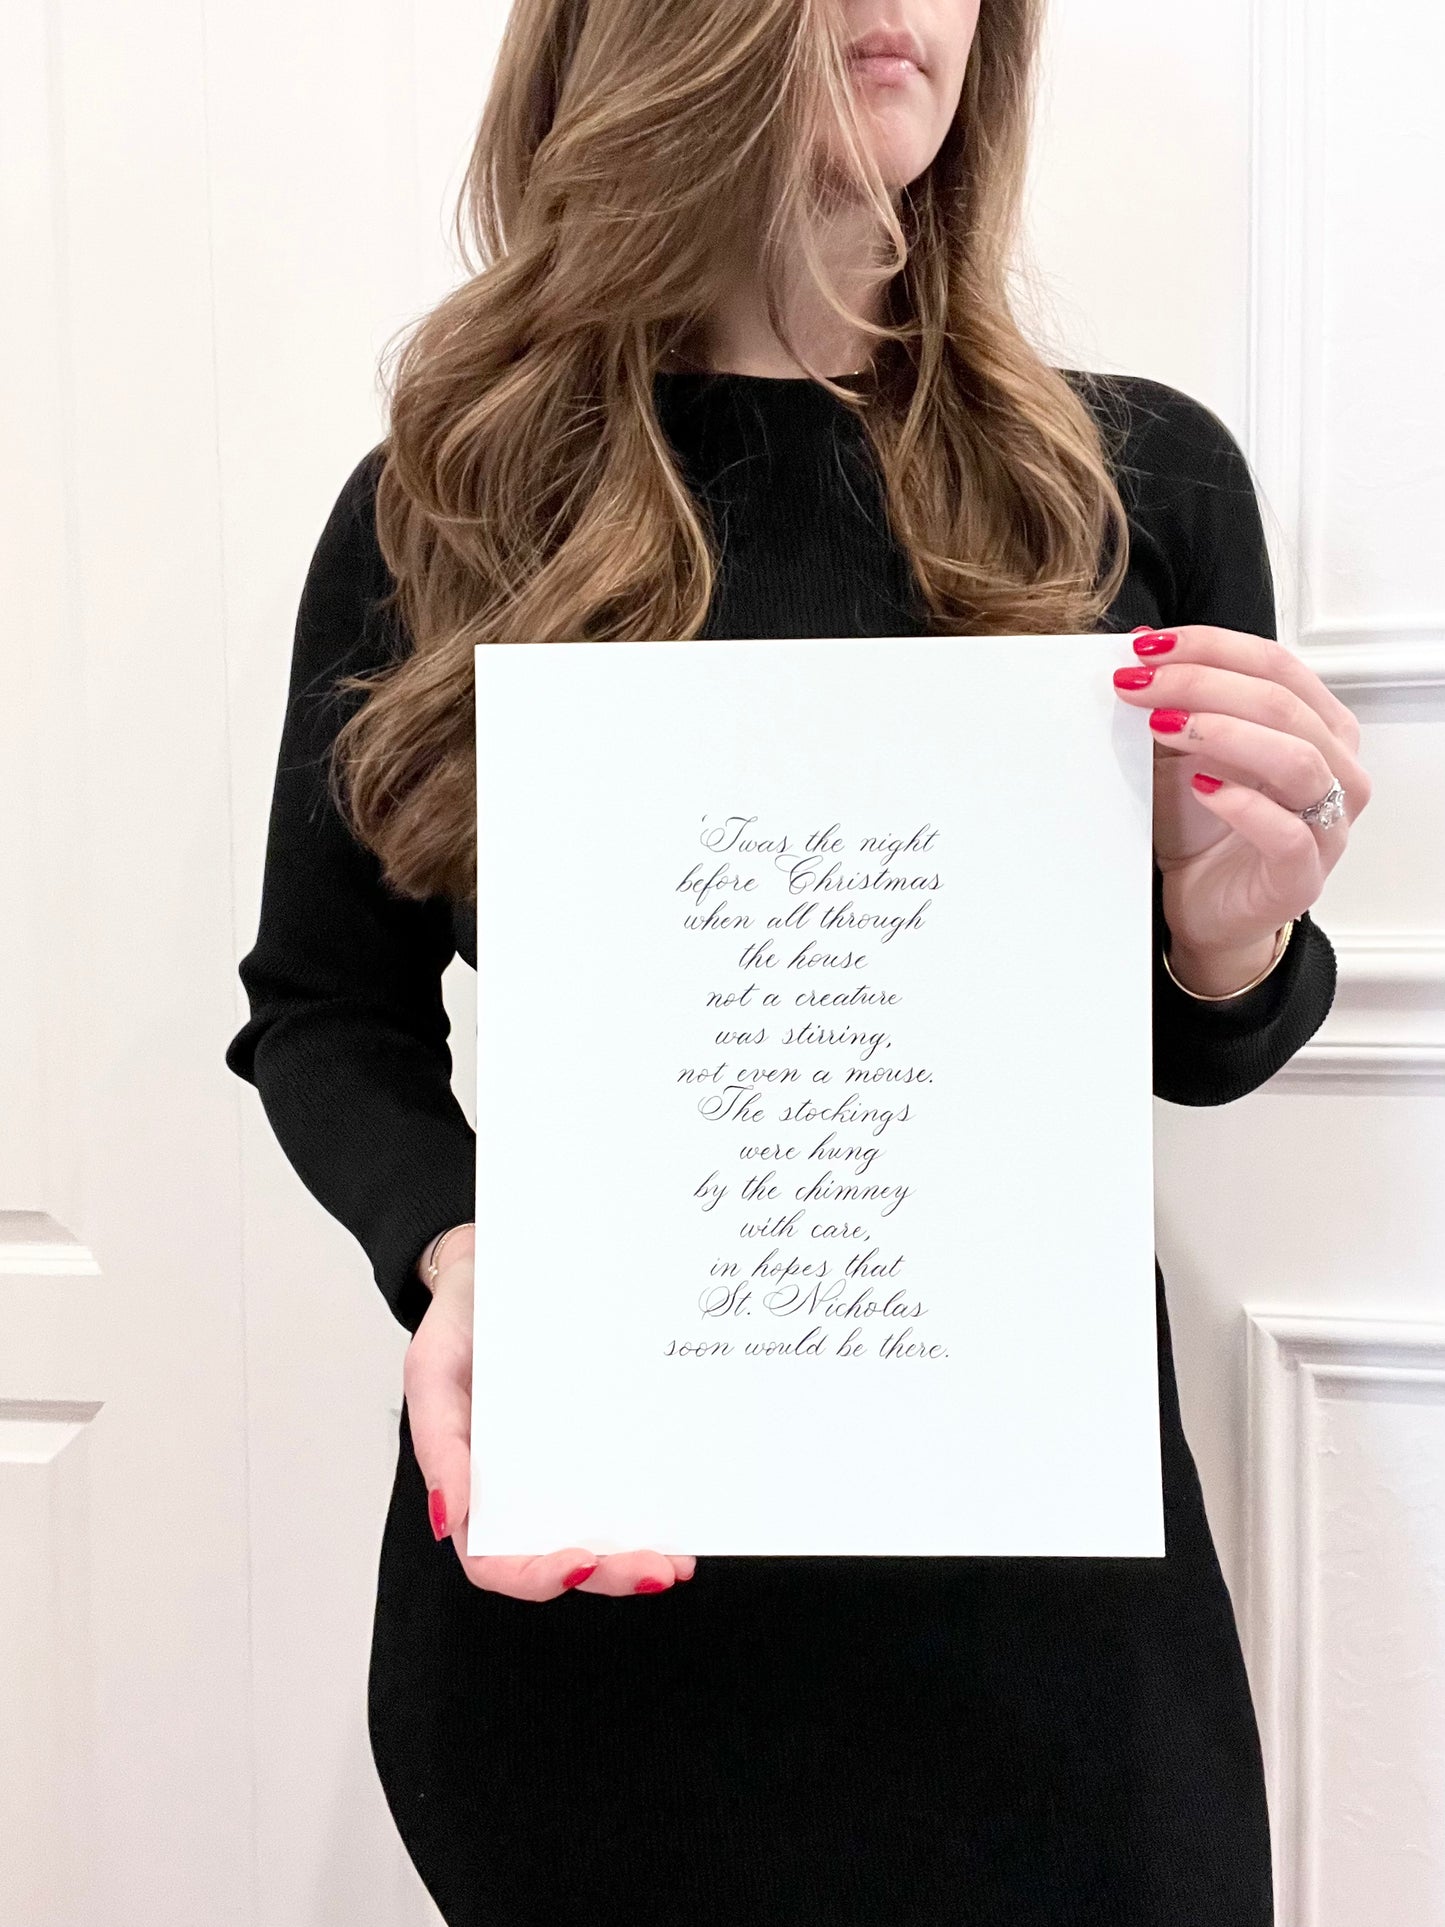 'Twas the night
before Christmas
when all through
the house
not a creature
was stirring,
not even a mouse.
The stockings
were hung
by the chimney
with care,
in hopes that
St. Nicholas
soon would be there.